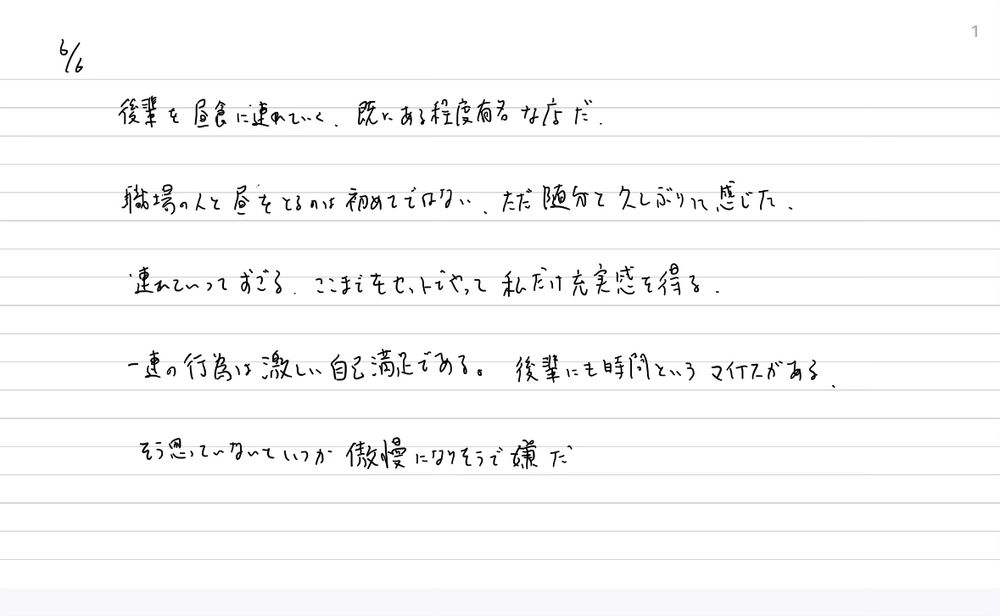 1
6/6
後輩を昼食に連れていく. 既にある程度有名な店だ.
職場の人と昼をとるのは初めてではない. ただ随分と久しぶりに感じた.
連れていっておごる. ここまでをセットでやって私だけ充実感を得る.
一連の行為は激しい自己満足である。後輩にも時間というマイナスがある.
そう思っていないといつか傲慢になりそうで嫌だ